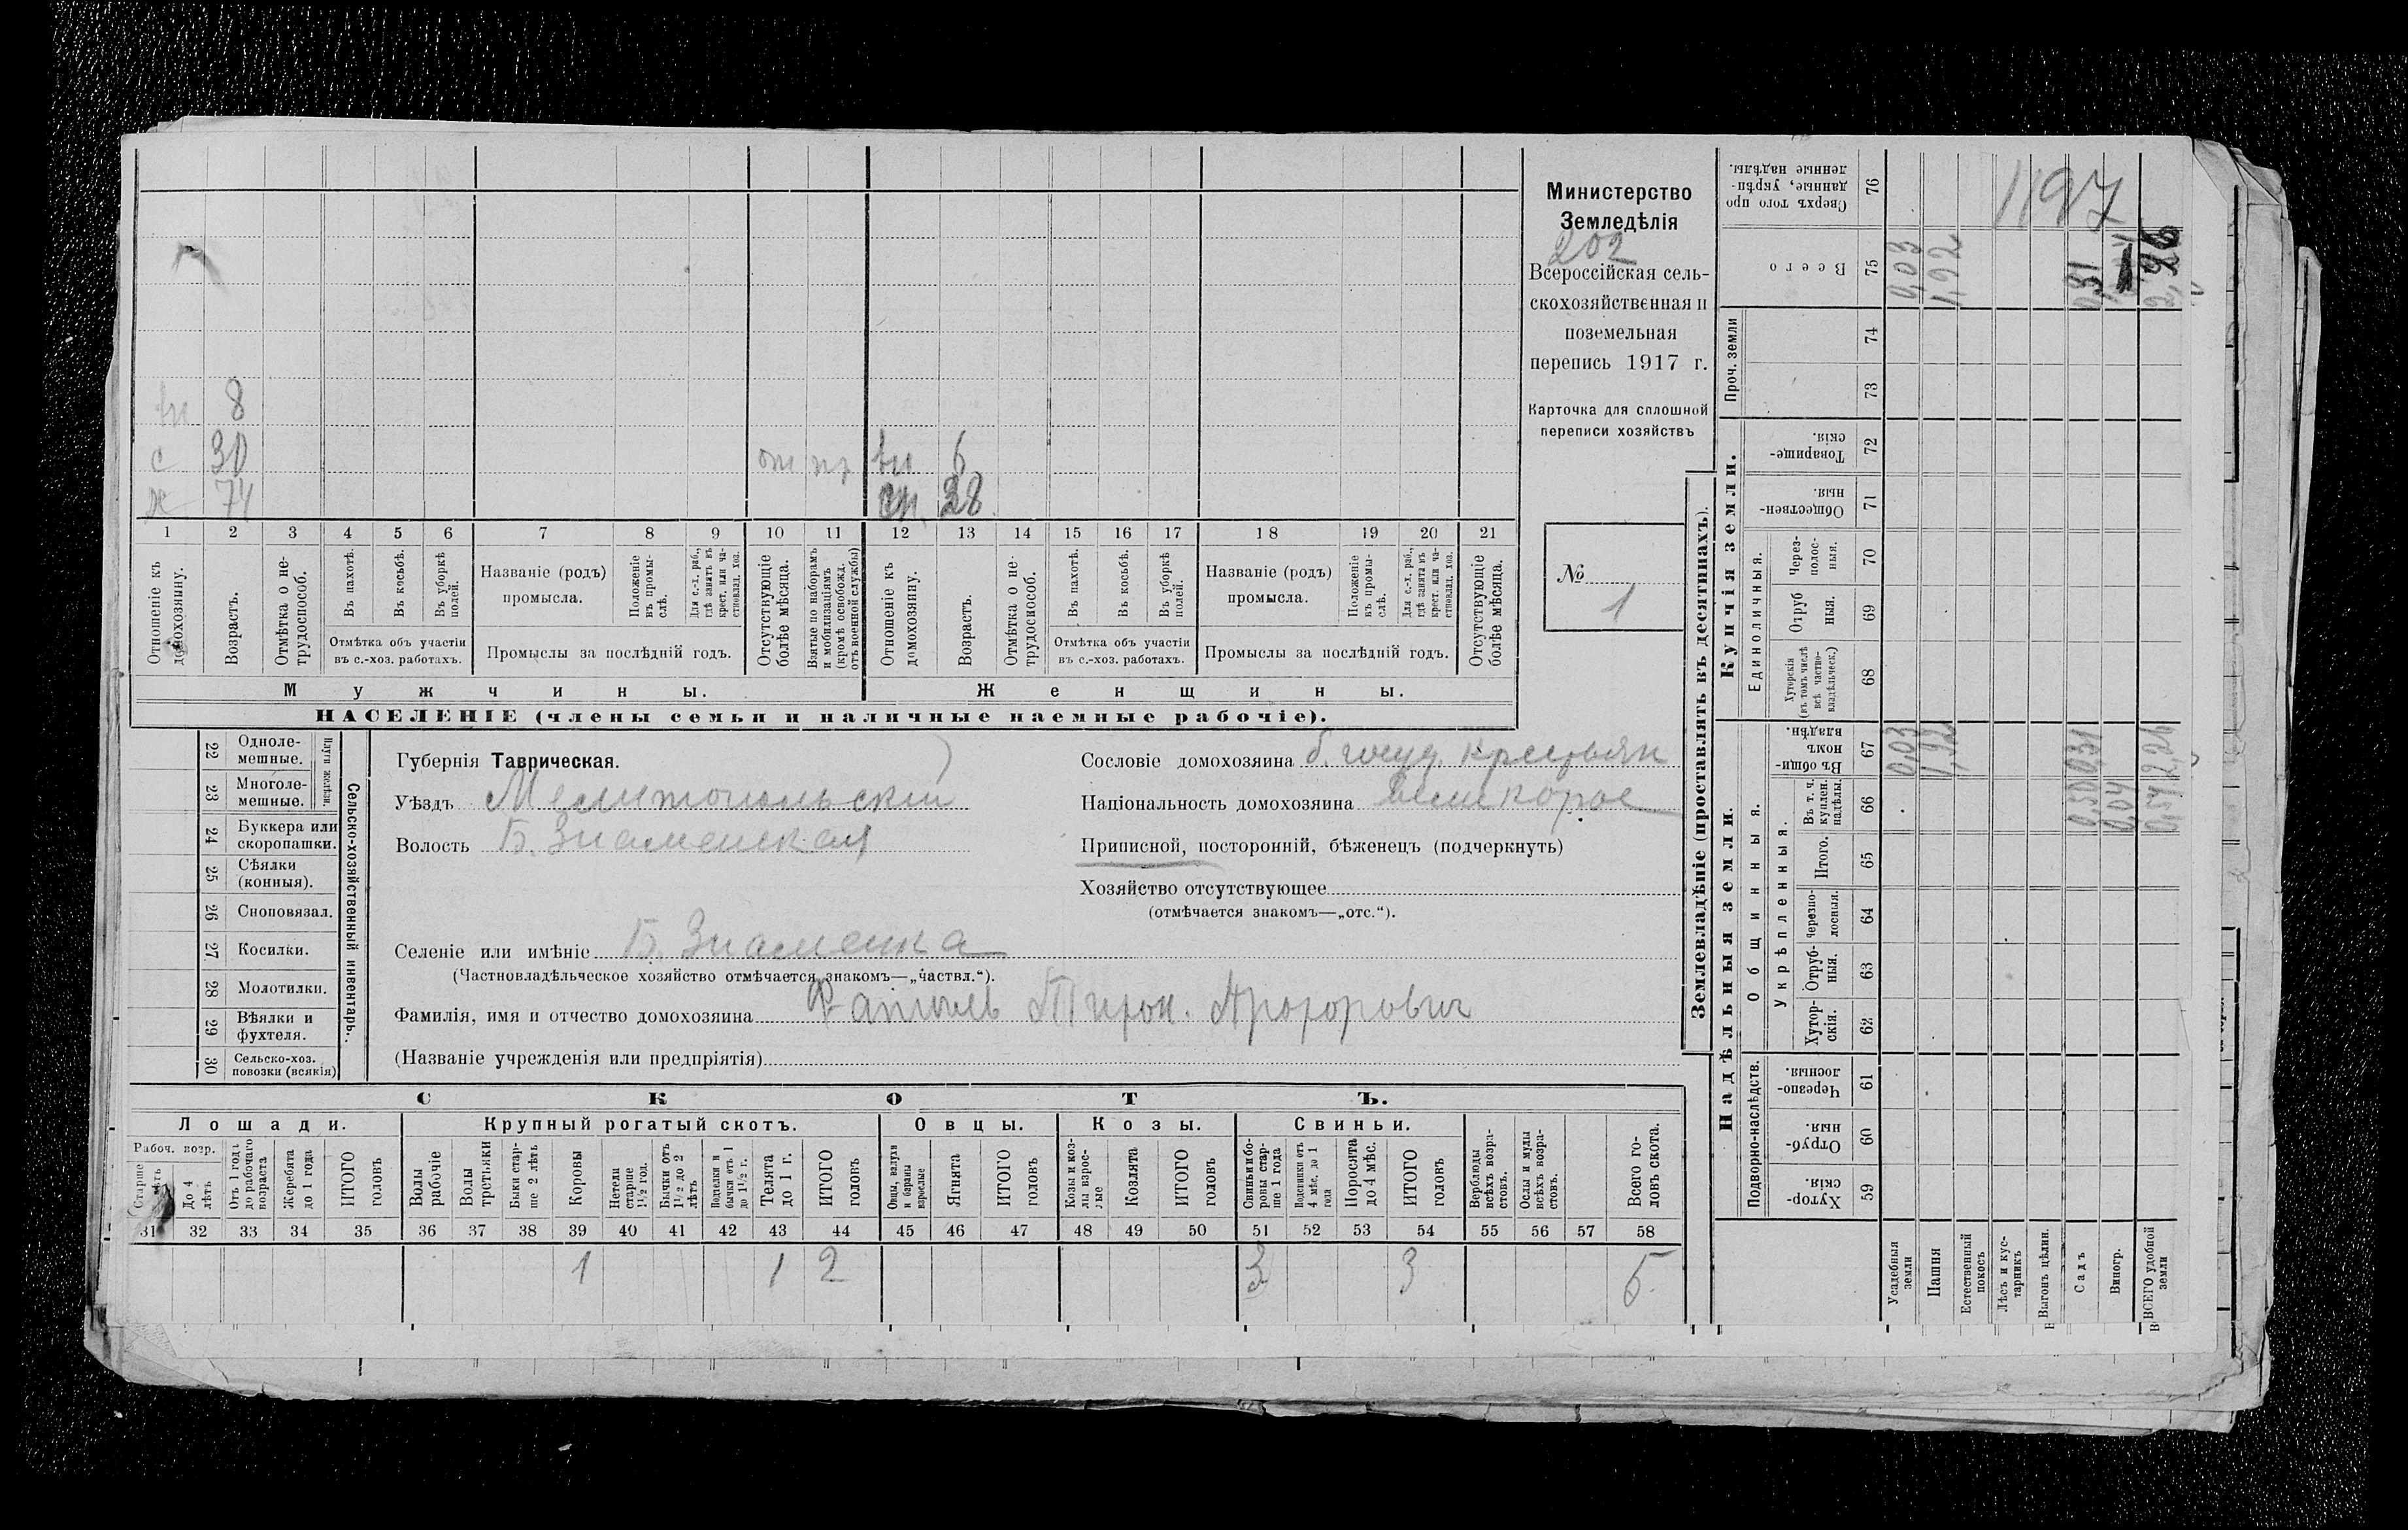 Министерство
Земледѣлія
202
Всероссійская сель-
скохозяйственная и
поземельная
перепись 1917 г.
Карточка для сплошной
переписи хозяйствъ
№ 1
вн 8
с 30 от вн 6
х 74 сн 28
1 2 3 4 5 6 7 8 9 10 11 12 13 14 15 16 17 18 19 20 21
Отношеніе къ домохозяину.
Возрастъ.
Отмѣтка о не-трудоспособ.
Въ пахотѣ.
Въ косьбѣ.
Въ уборкѣ полей.
Отмѣтка объ участіи
въ с.-хоз. работахъ.
Названіе (родъ)
промысла.
Положеніе въ промы-слѣ.
Для с.-х. раб., гдѣ занятъ въ крест. или ча-стновлад. хоз.
Промыслы за послѣдній годъ.
Отсутствующіе болѣе мѣсяца.
Взятые по наборамъ и мобилизаціямъ (кромѣ освобожд. отъ военной службы)
Отношеніе къ домохозяину.
Возрастъ.
Отмѣтка о не-трудоспособ.
Въ пахотѣ.
Въ косьбѣ.
Въ уборкѣ полей.
Отмѣтка объ участіи
въ с.-хоз. работахъ.
Названіе (родъ)
промысла.
Положеніе въ промы-слѣ.
Для с.-х. раб., гдѣ занята въ крест. или ча-стновлад. хоз.
Промыслы за послѣдній годъ.
Отсутствующіе болѣе мѣсяца.
Мужчины. Женщины.
НАСЕЛЕНІЕ (члены семьи и наличные наемные рабочіе).
Сельско-хозяйственный инвентарь.
Плуги желѣзн.
22 Одноле-мешные.
23 Многоле-мешные.
24 Буккера или скоропашки.
25 Сѣялки (конныя).
26 Сноповязал.
27 Косилки.
28 Молотилки.
29 Вѣялки и фухтеля.
30 Сельско-хоз. повозки (всякія)
Губернія Таврическая.
Уѣздъ Мелитопольскій
Волость Б. Знаменская
Сословіе домохозяина б. госуд. крестьян
Національность домохозяина великорос
Приписной, посторонній, бѣженецъ (подчеркнуть)
Хозяйство отсутствующее
(отмѣчается знакомъ—„отс.“).
Селеніе или имѣніе Б. Знаменка
(Частновладѣльческое хозяйство отмѣчается знакомъ—„частвл.“).
Фамилія, имя и отчество домохозяина
(Названіе учрежденія или предпріятія)
СКОТЪ.
Лошади. Крупный рогатый скотъ. Овцы. Козы. Свиньи.
Рабоч. возр.
Старше лѣтъ
До 4 лѣтъ
Отъ 1 года до рабочаго возраста
Жеребята до 1 года
ИТОГО головъ
Волы рабочіе
Волы третьяки
Быки стар-ше 2 лѣтъ
Коровы
Нетели старше 1½ год.
Бычки отъ 1½ до 2 лѣтъ
Подтелки и бычки отъ 1 до 1½ г.
Телята до 1 г.
ИТОГО головъ
Овцы, валухи и бараны взрослые
Ягнята
ИТОГО головъ
Козы и коз-лы взрос-лые
Козлята
ИТОГО головъ
Свиньи и бо-ровы стар-ше 1 года
Подсвинки отъ 4 мѣс. до 1 года
Поросята до 4 мѣс.
ИТОГО головъ
Верблюды всѣхъ возра-стовъ.
Ослы и мулы всѣхъ возра-стовъ.
Всего го-ловъ скота.
31 32 33 34 35 36 37 38 39 40 41 42 43 44 45 46 47 48 49 50 51 52 53 54 55 56 57 58
1 1 2 3 3 5
Землевладѣніе (проставлять въ десятинахъ).
Надѣльныя земли. Купчія земли.
Подворно-наслѣдств. Общинныя. Укрѣпленныя. Единоличныя. Проч. земли
59 Хутор-скія.
60 Отруб-ныя.
61 Черезпо-лосныя.
62 Хутор-скія.
63 Отруб-ныя.
64 Черезпо-лосныя.
65 Итого.
66 Въ т. ч. куплен. надѣлы
67 Въ общин-номъ владѣн.
68 Хуторскія (въ томъ числѣ всѣ частно-владѣльческ.)
69 Отруб ныя.
70 Через-полос-ныя.
71 Обществен-ныя.
72 Товарище-скія.
73
74
75 Всего
76 Сверхъ того про данные, укрѣп-ленные надѣлы.
1197
Усадебныя земли 0,03 0,03
Пашня 1,92 1,92
Естественный покосъ
Лѣсъ и кус-тарникъ
Выгонъ цѣлин.
Садъ 0,50 0,31 0,81
Виногр. 0,04
ВСЕГО удобной земли 0,54 2,26